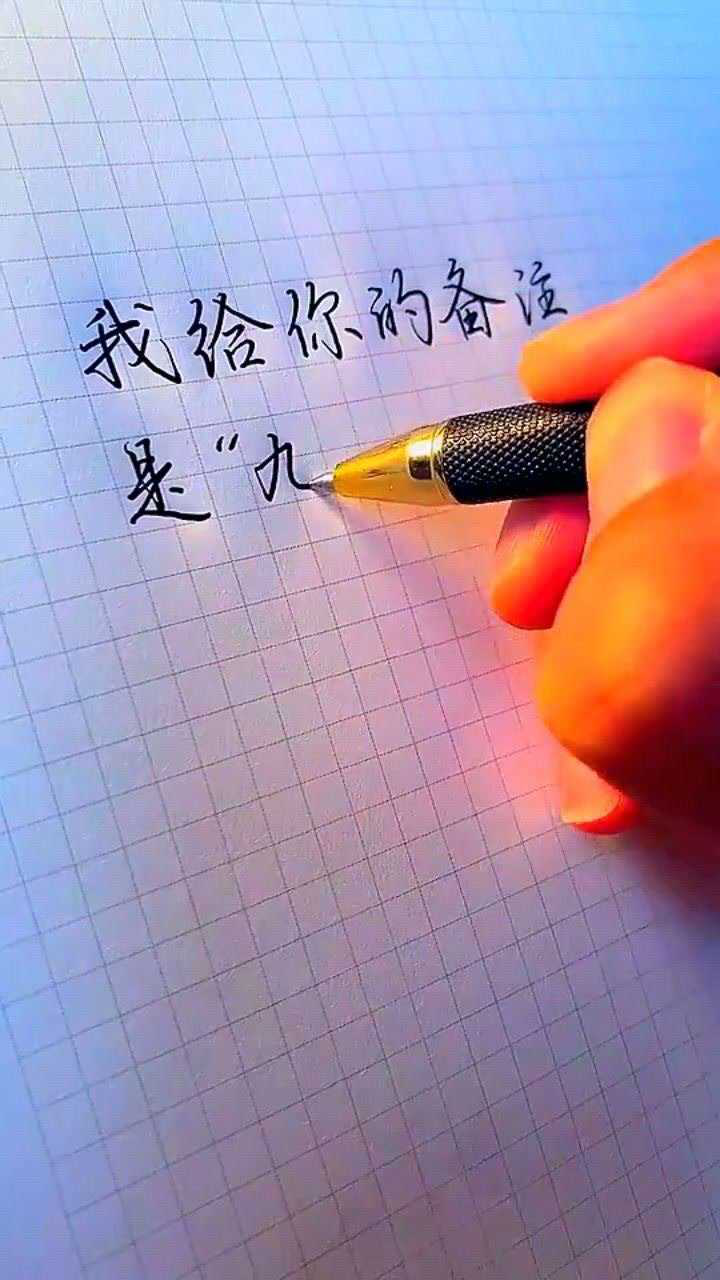 我给你的备注
是“九